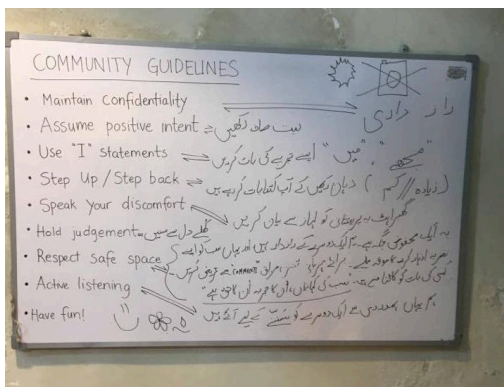 COMMUNITY GUIDELINES
• Maintain Confidentiality راز داری
• Assume positive intent نیت صاف رکھیں
• Use "I" statements "مجھے", "میں" اپنے تجربے کی بات کریں
• Step Up / Step back (زیادہ // کم) دہان رکھیں کے آپ کتنا بات کر رہے ہیں
• Speak your discomfort گھبراہٹ یہ پریشانی کو اظہار سے بیان کریں
• Hold judgement کھلے دل سے سنیں
یہ ایک محفوظ جگہ ہے۔ ہم ایک دوسرے کے رازدار ہیں اور یہاں سب کو
• Respect safe space
کسی کی بات کو
• Active listening
ہم یہاں ہمدردی سے ایک دوسرے کو سننے کے لیے آئے ہیں
• Have fun!